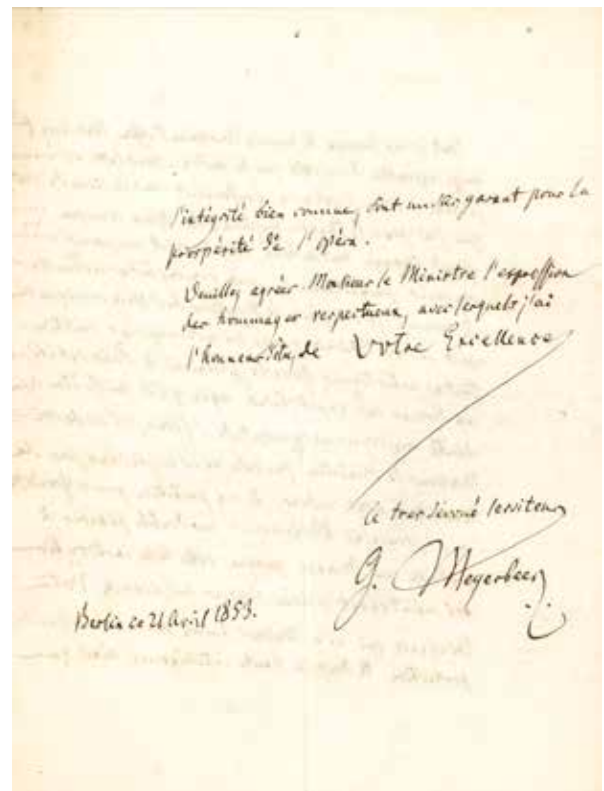 l'intégrité bien connue, sont un sûr garant pour la
prospérité de l'opéra.
Veuillez agréer Monsieur le Ministre l'expression
des hommages respectueux, avec lesquels j'ai
l'honneur d'etre, de Votre Excellence
le tres devoué serviteur
G. Meyerbeer
Berlin ce 21 Avril 1853.